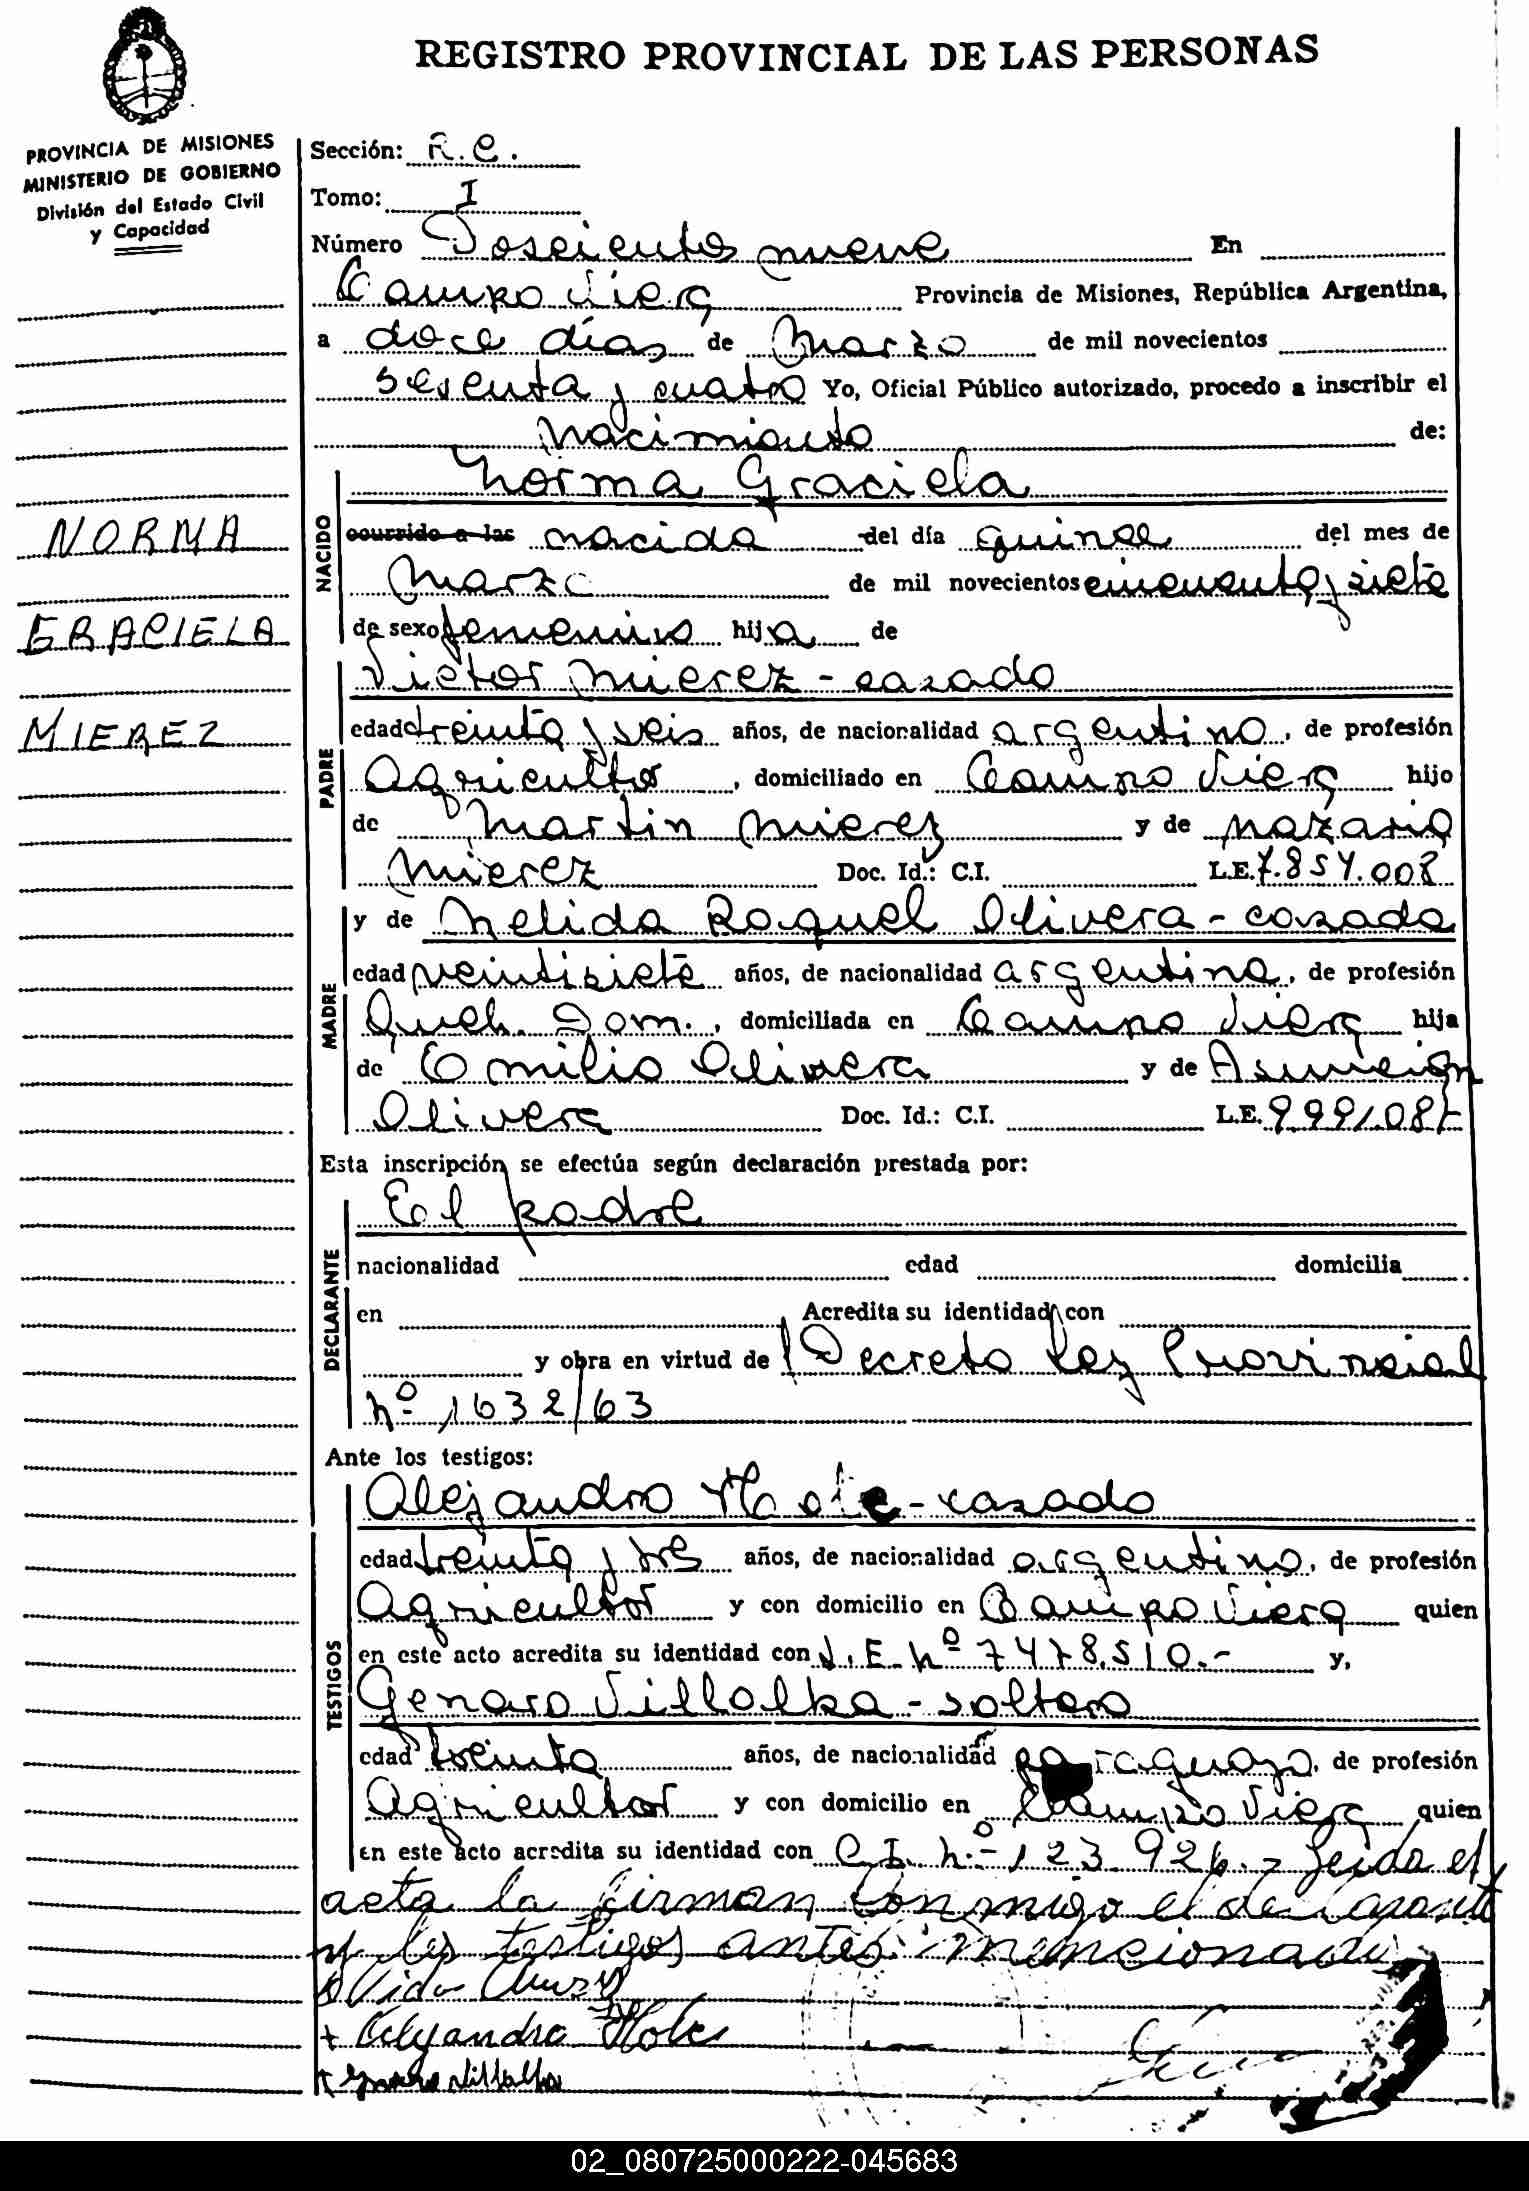 REGISTRO PROVINCIAL DE LAS PERSONAS
PROVINCIA DE MISIONES
MINISTERIO DE GOBIERNO
División del Estado Civil
y Capacidad
NORMA
GRACIELA
MIEREZ
Sección: R.C.
Tomo: I
Número Doscientos nueve En
Campo Viera Provincia de Misiones, República Argentina,
a doce días de Marzo de mil novecientos
sesenta y cuatro Yo, Oficial Público autorizado, procedo a inscribir el
Nacimiento de:
NACIDO
Norma Graciela
ocurrido a las nacida del día quince del mes de
Marzo de mil novecientos cincuenta y siete
de sexo femenino hija de
PADRE
Victor Mierez - casado
edad treinta y seis años, de nacionalidad argentino, de profesión
Agricultor, domiciliado en Campo Viera hijo
de Martin Mierez y de Nazaria
Mierez Doc. Id.: C.I. L.E. 7.854.008
MADRE
y de Nelida Raquel Olivera - casada
edad veintisiete años, de nacionalidad argentina, de profesión
Queh. Dom., domiciliada en Campo Viera hija
de Emilio Olivera y de Asunción
Olivera Doc. Id.: C.I. L.E.
Esta inscripción se efectúa según declaración prestada por:
DECLARANTE
El padre
nacionalidad edad domicilia
en Acredita su identidad con
y obra en virtud de Decreto Ley Provincial
Nº 1632/63
Ante los testigos:
TESTIGOS
Alejandro - casado
edad treinta y tres años, de nacionalidad argentino, de profesión
Agricultor y con domicilio en Campo Viera quien
en este acto acredita su identidad con L.E. Nº 7478.510.- y,
Genaro Villalba - soltero
edad treinta años, de nacionalidad paraguayo, de profesión
Agricultor y con domicilio en Campo Viera quien
en este acto acredita su identidad con C.I. Nº 123.926.- Leida el
acta la firman conmigo el declarante
y los testigos antes mencionados
Alejandro
Genaro Villalba
02_080725000222-045683